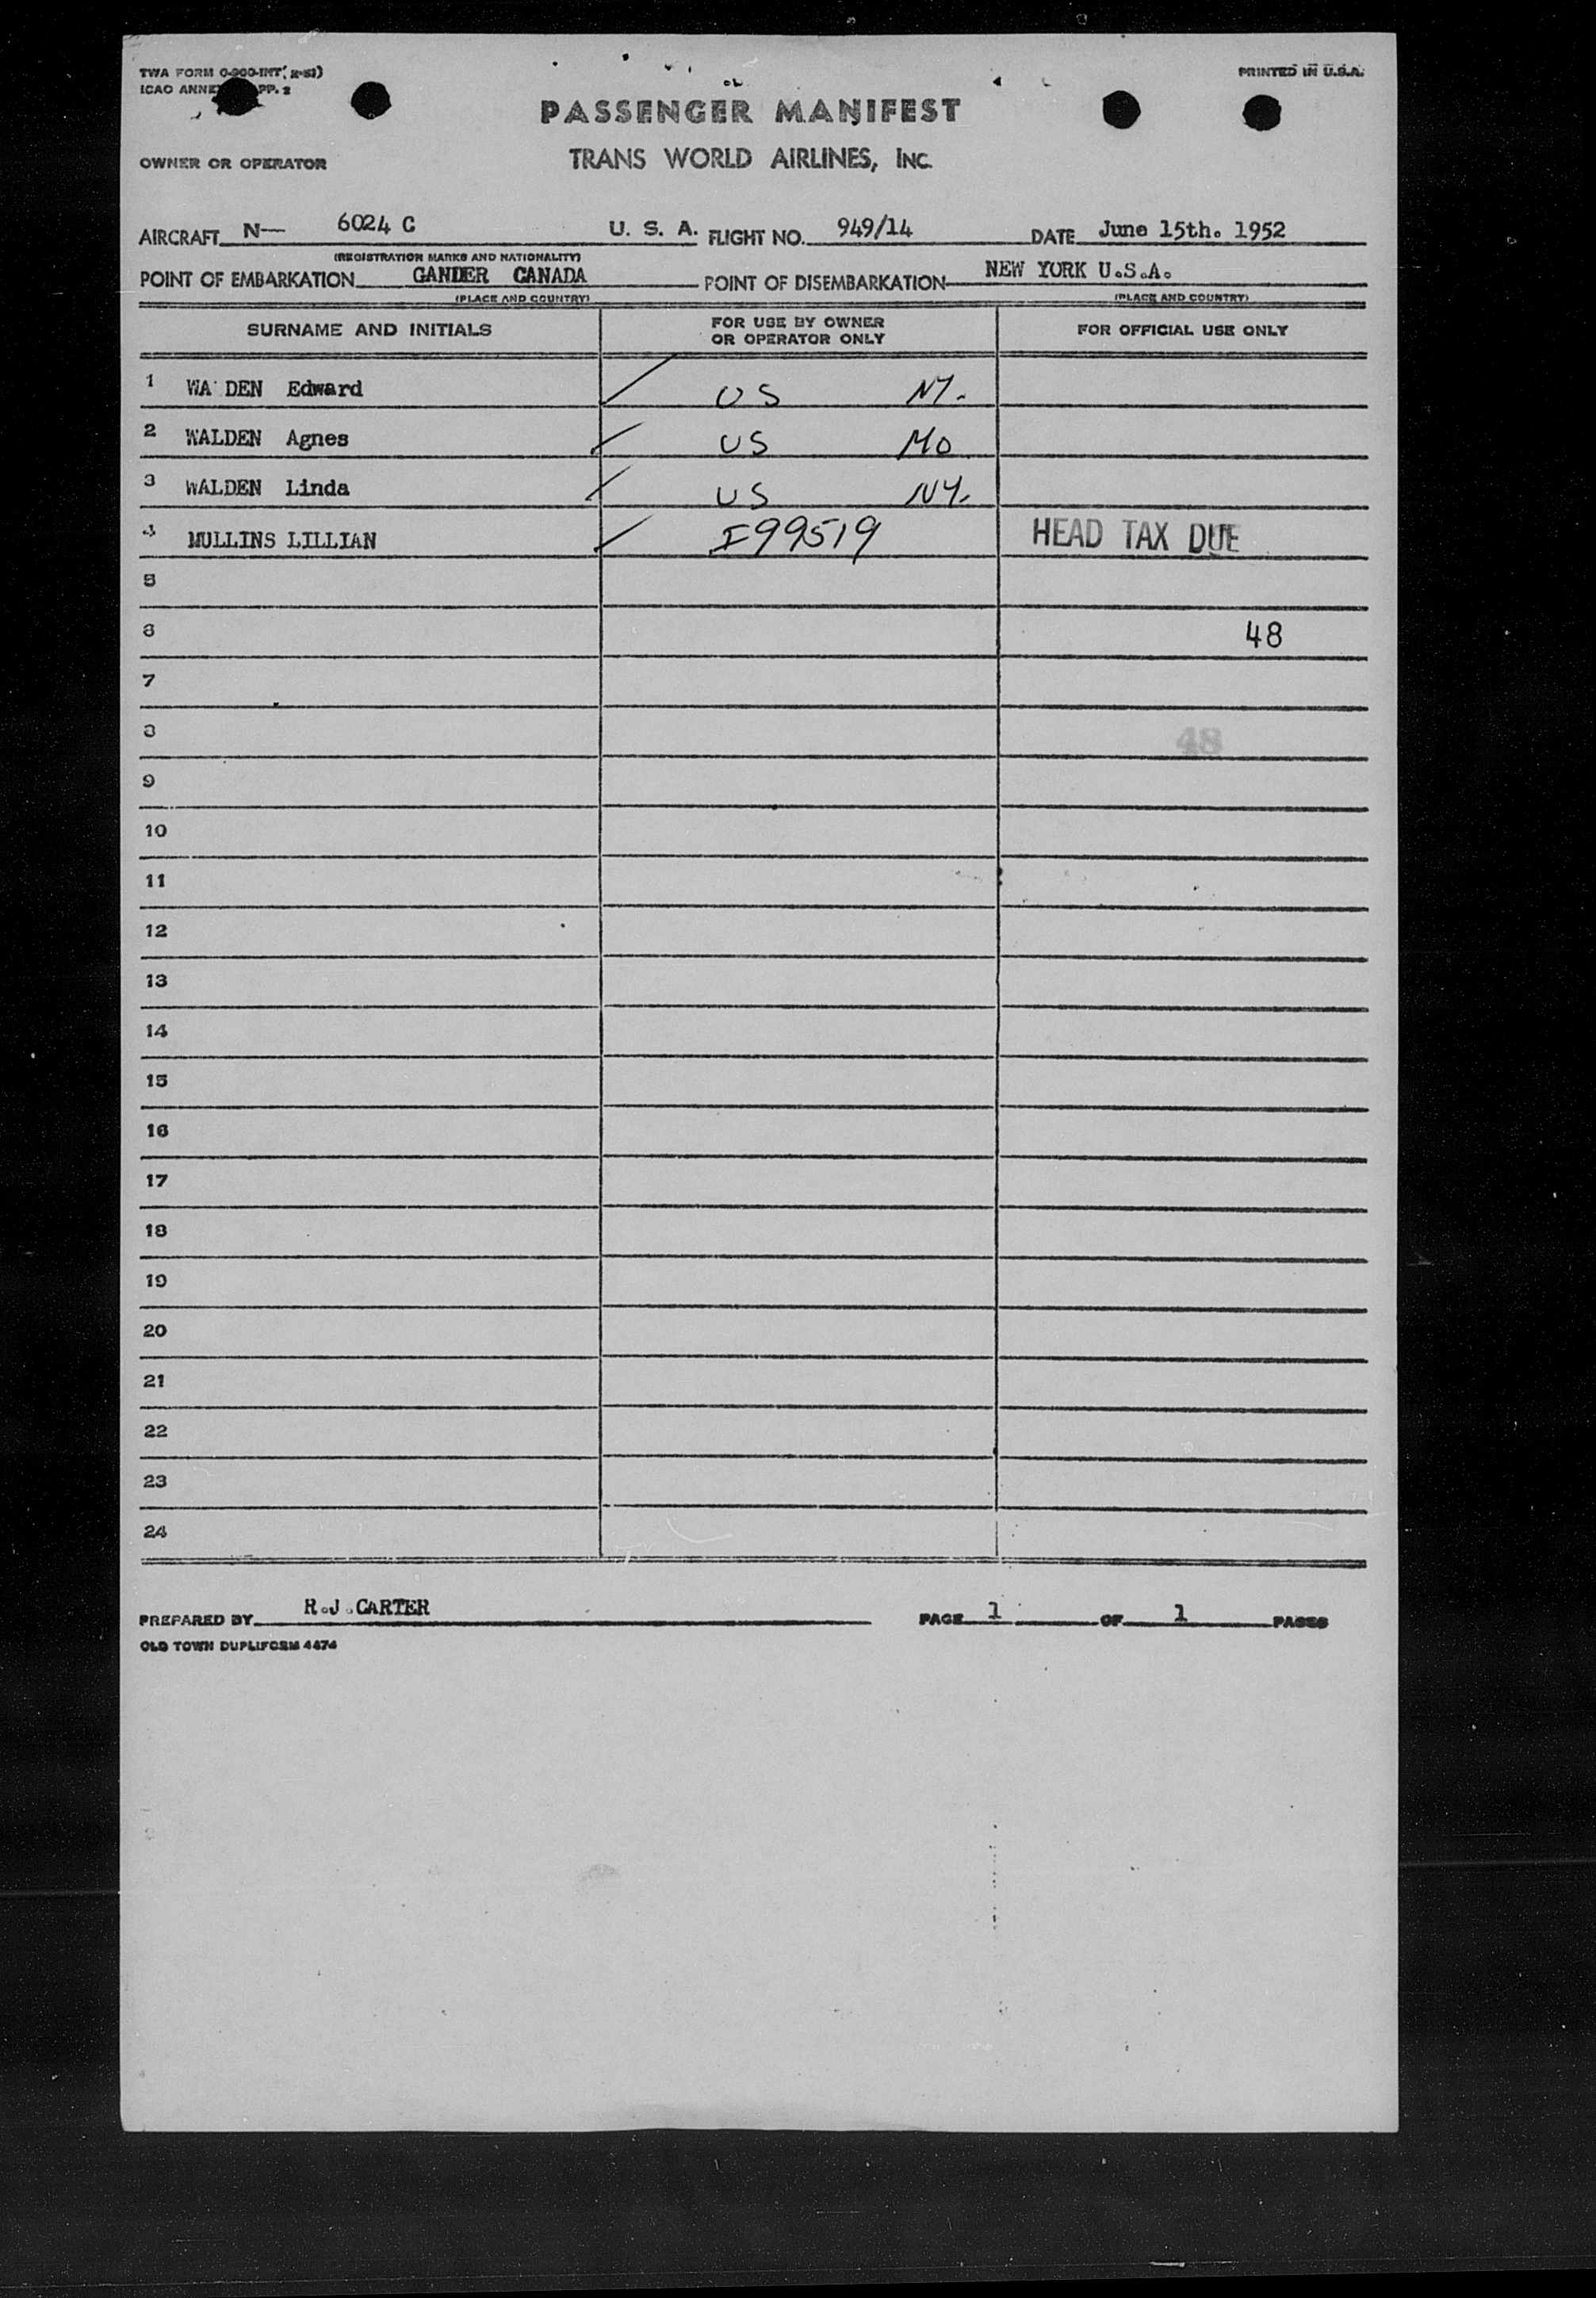 TWA FORM O-900-INT (R-51)
PRINTED IN U.S.A.
ICAO ANNEX PP. 2
PASSENGER MANIFEST
OWNER OR OPERATOR
TRANS WORLD AIRLINES, INC.
AIRCRAFT N— 6024 C U. S. A. FLIGHT NO. 949/14 DATE June 15th. 1952
(REGISTRATION MARKS AND NATIONALITY)
POINT OF EMBARKATION GANDER CANADA POINT OF DISEMBARKATION NEW YORK U.S.A.
(PLACE AND COUNTRY) (PLACE AND COUNTRY)
SURNAME AND INITIALS FOR USE BY OWNER OR OPERATOR ONLY FOR OFFICIAL USE ONLY
1 WA DEN Edward US NY.
2 WALDEN Agnes US MO
3 WALDEN Linda US NY.
4 MULLINS LILLIAN I99519 HEAD TAX DUE
5
6 48
7
8 48
9
10
11
12
13
14
15
16
17
18
19
20
21
22
23
24
PREPARED BY R.J.CARTER PAGE 1 OF 1 PAGES
OLD TOWN DUPLIFORM 4474